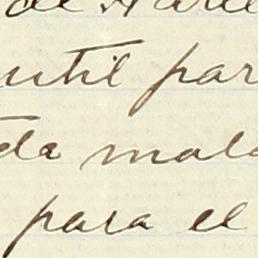 de
util par
da mala
para el